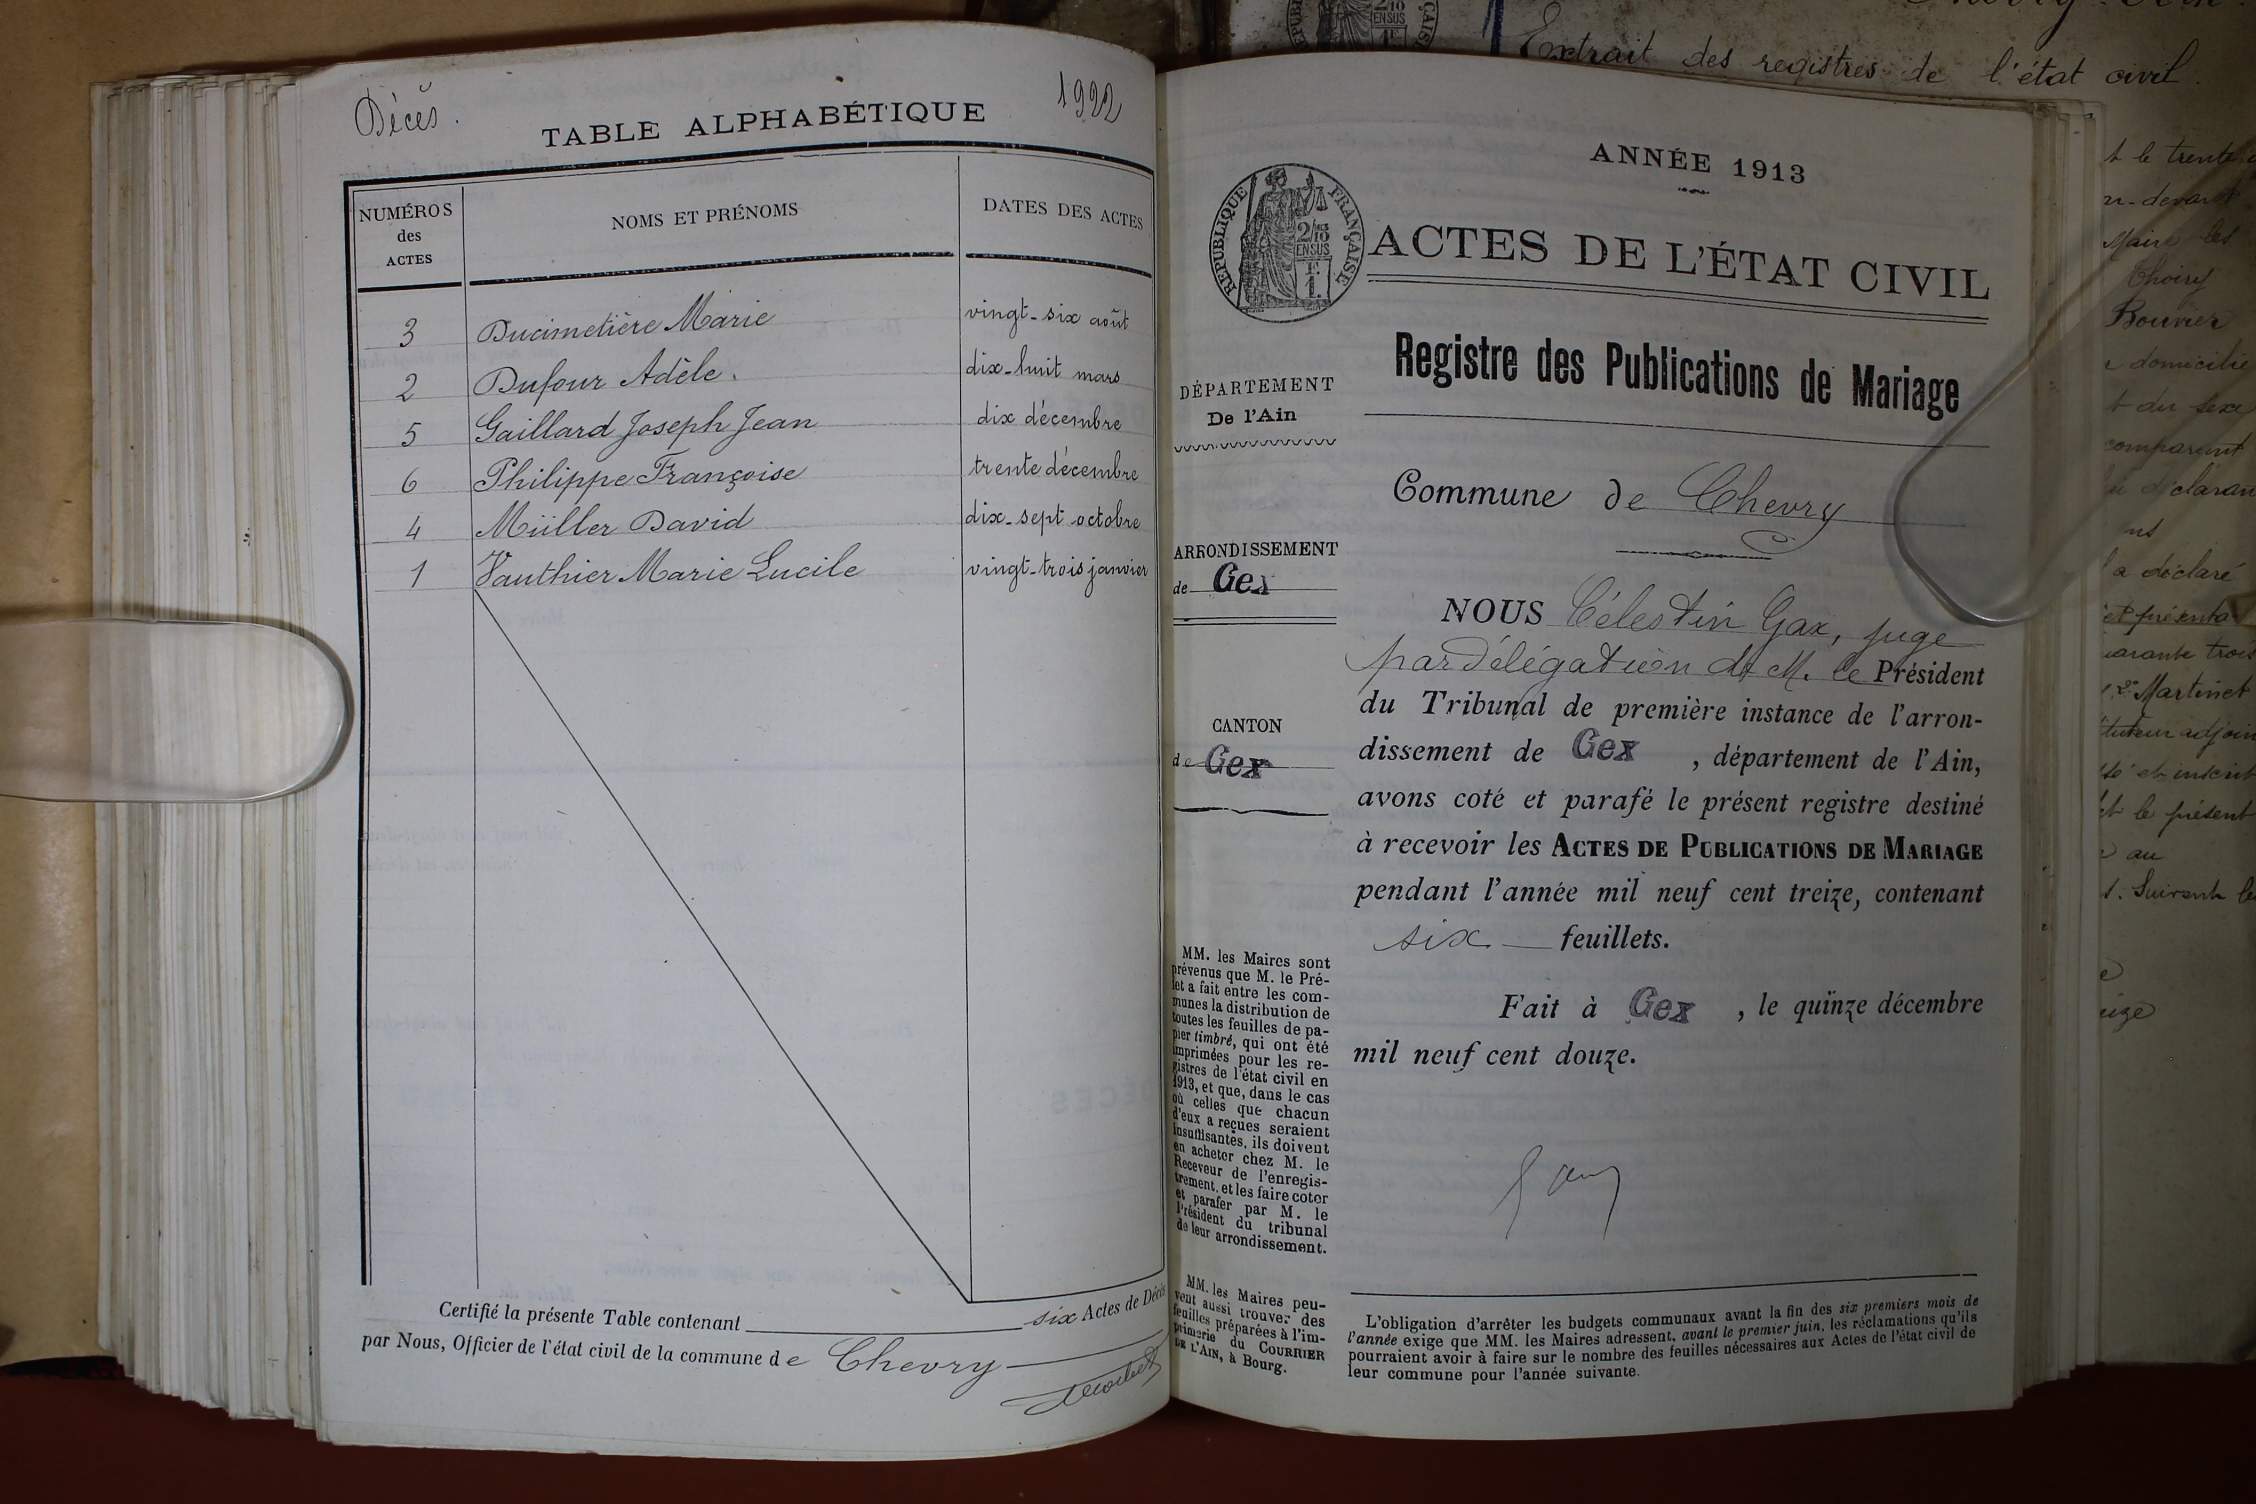 Décès.
1922
TABLE ALPHABÉTIQUE
NUMÉROS des ACTES
NOMS ET PRÉNOMS
DATES DES ACTES
3 Ducimetière Marie vingt-six août
2 Dufour Adèle. dix-huit mars
5 Gaillard Joseph Jean dix décembre
6 Philippe Françoise trente décembre
4 Müller David dix-sept octobre
1 Vauthier Marie Lucile vingt-trois janvier
Certifié la présente Table contenant six Actes de Décès
par Nous, Officier de l'état civil de la commune de Chevry
ANNÉE 1913
RÉPUBLIQUE FRANÇAISE
2/10
EN SUS
1 F.
ACTES DE L'ÉTAT CIVIL
Registre des Publications de Mariage
DÉPARTEMENT
De l'Ain
ARRONDISSEMENT
de Gex
CANTON
de Gex
MM. les Maires sont
prévenus que M. le Pré-
fet a fait entre les com-
munes la distribution de
toutes les feuilles de pa-
pier timbré, qui ont été
imprimées pour les re-
gistres de l'état civil en
1913, et que, dans le cas
où celles que chacun
d'eux a reçues seraient
insuffisantes, ils doivent
en acheter chez M. le
Receveur de l'enregis-
trement, et les faire coter
et parafer par M. le
Président du tribunal
de leur arrondissement.
MM. les Maires peu-
vent aussi trouver des
feuilles préparées à l'im-
primerie du COURRIER
DE L'AIN, à Bourg.
Commune de Chevry
NOUS Célestin Gax, juge
par délégation de M. le Président
du Tribunal de première instance de l'arron-
dissement de Gex , département de l'Ain,
avons coté et parafé le présent registre destiné
à recevoir les ACTES DE PUBLICATIONS DE MARIAGE
pendant l'année mil neuf cent treize, contenant
six feuillets.
Fait à Gex , le quinze décembre
mil neuf cent douze.
L'obligation d'arrêter les budgets communaux avant la fin des six premiers mois de
l'année exige que MM. les Maires adressent, avant le premier juin, les réclamations qu'ils
pourraient avoir à faire sur le nombre des feuilles nécessaires aux Actes de l'état civil de
leur commune pour l'année suivante.
Extrait des registres de l'état civil.
le trente
devant
Maire les
Choiry
Bouvier
domicilié
du sexe
comparant
a déclaré
et présenta
quarante trois
2° Martinet
adjoin
et inscrit
le présent
au
Suivent le